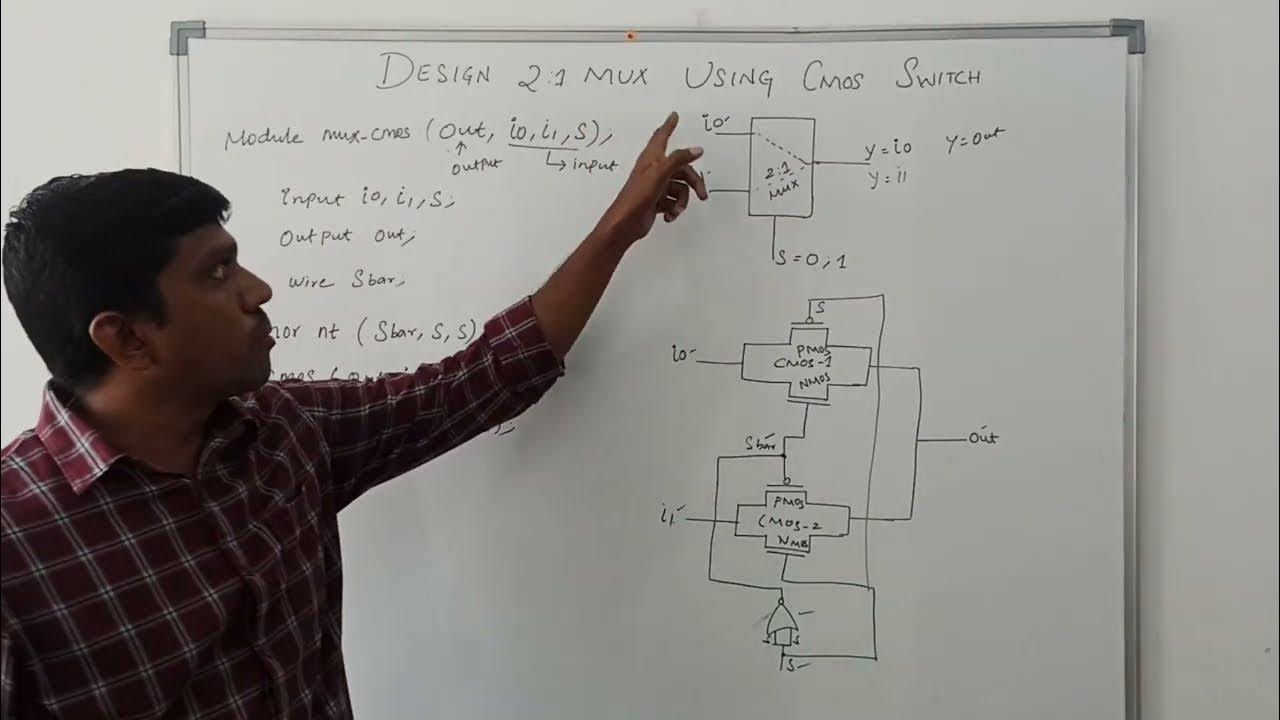 DESIGN 2:1 MUX USING CMOS SWITCH
Module mux-cmos (Out, i0, i1, S);
output
input
Input i0, i1, S;
Output out;
wire Sbar;
nor nt (Sbar, S, S)
i0
2:1
MUX
Y = i0
Y = i1
Y = Out
S = 0, 1
S
i0
PMOS
CMOS-1
NMOS
Sbar
Out
i1
PMOS
CMOS-2
NMOS
S
S
S